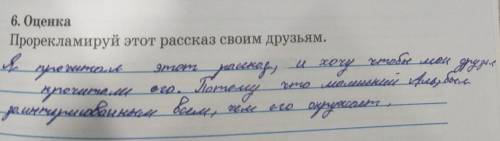 6. Оценка
Прорекламируй этот рассказ своим друзьям.
Я прочитала этот рассказ, и хочу чтобы мои друзья
прочитали его. Потому что маленький был
всем, чем его окружает.